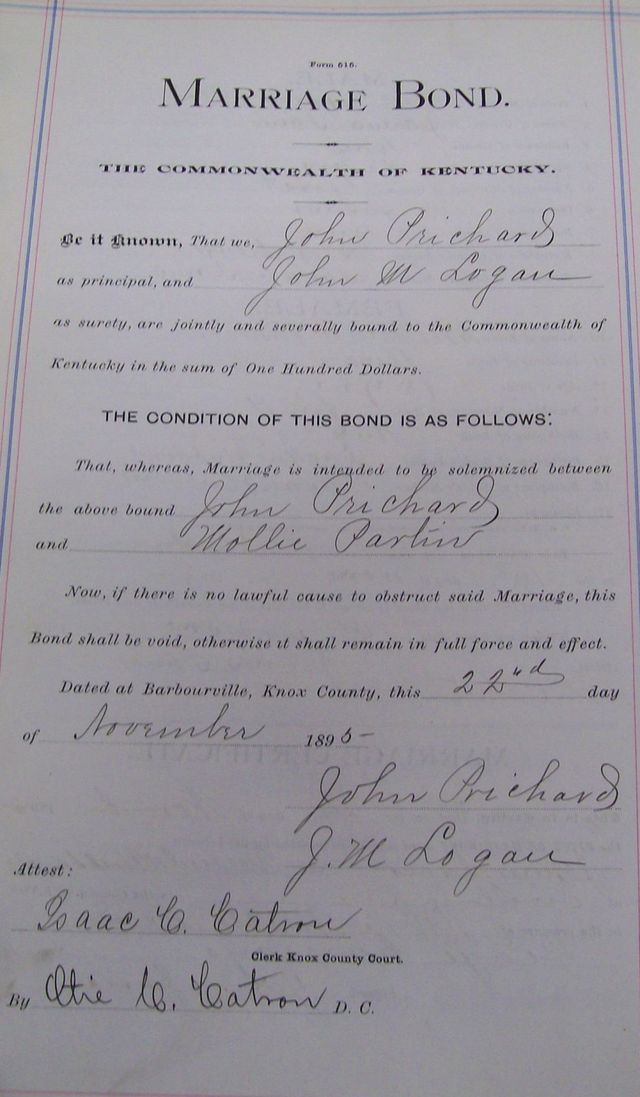 Form 616.
MARRIAGE BOND.
THE COMMONWEALTH OF KENTUCKY.
Be it Known, That we, John Prichard
as principal, and John M Logan
as surety, are jointly and severally bound to the Commonwealth of
Kentucky in the sum of One Hundred Dollars.
THE CONDITION OF THIS BOND IS AS FOLLOWS:
That, whereas, Marriage is intended to be solemnized between
the above bound John Prichard
and Mollie Parlin
Now, if there is no lawful cause to obstruct said Marriage, this
Bond shall be void, otherwise it shall remain in full force and effect.
Dated at Barbourville, Knox County, this 22nd day
of November 1895
John Prichard
J. M Logan
Attest:
Isaac C. Catron
Clerk Knox County Court.
By Otie C. Catron D. C.